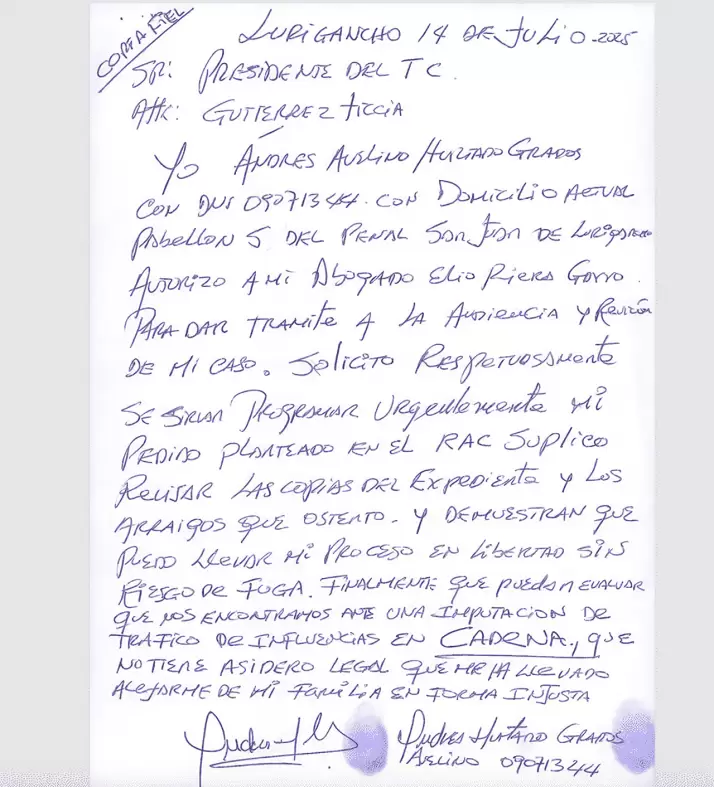 COPIA FIEL
LURIGANCHO 14 DE JULIO - 2025
SR: PRESIDENTE DEL TC.
Attc: GUTIERREZ TICCIA
Yo ANDRES AVELINO HURTADO GRADOS
CON DNI 09071344. CON DOMICILIO ACTUAL
PABELLON 5 DEL PENAL SAN JUAN DE LURIGANCHO
AUTORIZO A MI ABOGADO Elio Riera Garro.
PARA DAR TRAMITE A LA AUDIENCIA Y REVISIÓN
DE MI CASO. SOLICITO RESPETUOSAMENTE
SE SIRVAN PROGRAMAR URGENTEMENTE MI
PEDIDO PLANTEADO EN EL RAC SUPLICO
REVISAR LAS COPIAS DEL EXPEDIENTE Y LOS
ARRAIGOS QUE OSTENTO. Y DEMUESTRAN QUE
PUEDO LLEVAR MI PROCESO EN LIBERTAD SIN
RIESGO DE FUGA. FINALMENTE QUE PUEDAN EVALUAR
QUE NOS ENCONTRAMOS ANTE UNA IMPUTACION DE
TRAFICO DE INFLUENCIAS EN CADENA, QUE
NO TIENE ASIDERO LEGAL QUE ME HA LLEVADO
ALEJARME DE MI FAMILIA EN FORMA INJUSTA
ANDRES HURTADO GRADOS
AVELINO 09071344